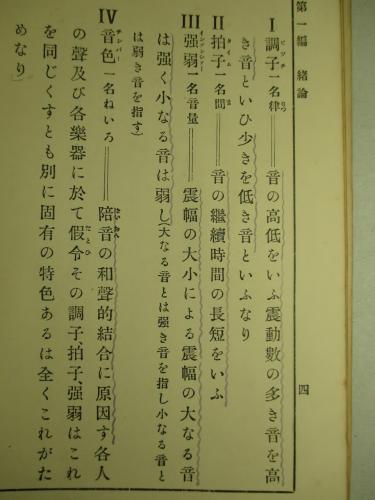 第一編　緒論
四
I 調子一名律══音の高低をいふ震動數の多き音を高
き音といひ少きを低き音といふなり
II 拍子一名間══音の繼續時間の長短をいふ
III 强弱一名音量══震幅の大小による震幅の大なる音
は强く小なる音は弱し(大なる音とは强き音を指し小なる音と
は弱き音を指す)
IV 音色一名ねいろ══陪音の和聲的結合に原因す各人
の聲及び各樂器に於て假令その調子、拍子、强弱はこれ
を同じくすとも別に固有の特色あるは全くこれがた
めなり)